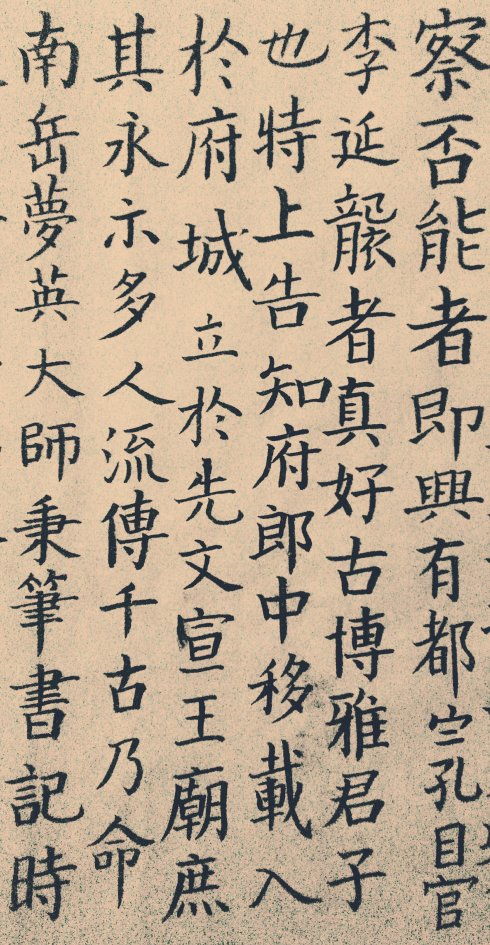 察否能者即興有都官孔目官
李延襲者真好古博雅君子
也特上告知府郎中移載入
於府城立於先文宣王廟庶
其永示多人流傳千古乃命
南岳夢英大師秉筆書記時